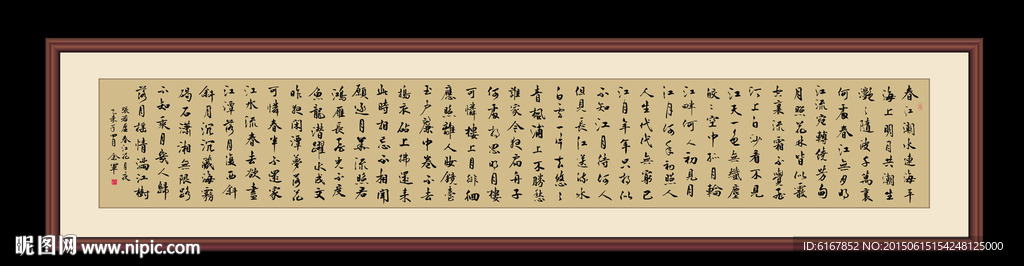 春江潮水連海平
海上明月共潮生
灩〻隨波千萬裏
何處春江無月明
江流宛轉繞芳甸
月照花林皆似霰
空裏流霜不覺飛
汀上白沙看不見
江天一色無纖塵
皎〻空中孤月輪
江畔何人初見月
江月何年初照人
人生代代無窮已
江月年年只相似
不知江月待何人
但見長江送流水
白雲一片去悠〻
青楓浦上不勝愁
誰家今夜扁舟子
何處相思明月樓
可憐樓上月徘徊
應照離人妝鏡臺
玉戶簾中卷不去
搗衣砧上拂還來
此時相望不相聞
願逐月華流照君
鴻雁長飛光不度
魚龍潛躍水成文
昨夜閑潭夢落花
可憐春半不還家
江水流春去欲盡
江潭落月復西斜
斜月沉沉藏海霧
碣石瀟湘無限路
不知乘月幾人歸
落月搖情滿江樹
張若虛春江花月夜
昵图网 www.nipic.com
ID:6167852 NO:20150615154248125000